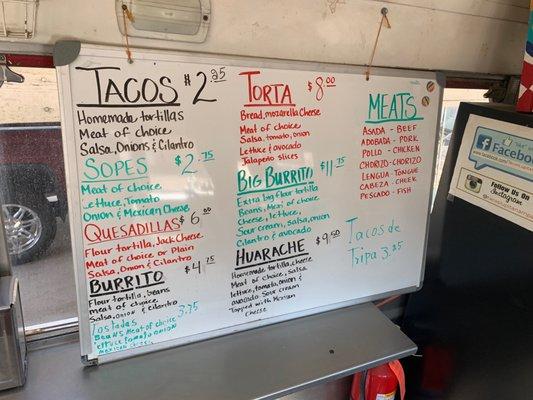 TACOS $2.25
Homemade tortillas
Meat of choice
Salsa, Onions & Cilantro
SOPES $2.75
Meat of choice
Lettuce, Tomato
Onion & Mexican Cheese
QUESADILLAS $6.00
Flour tortilla, Jack Cheese
Meat of choice or Plain
Salsa, Onion & Cilantro
BURRITO $4.75
Flour tortilla, beans
meat of choice
Salsa, onion & cilantro
Tostadas 3.75
Beans Meat of choice
Lettuce tomato onion
mexican
TORTA $8.00
Bread, mozarella Cheese
Meat of choice
Salsa, tomato, onion
Lettuce & avocado
Jalapeño slices
BIG BURRITO $11.75
Extra big flour tortilla
Beans, Meat of choice,
Cheese, lettuce,
Sour cream, salsa, onion
Cilantro & avocado
HUARACHE $9.50
Homemade tortilla, cheese
Meat of choice, Salsa
lettuce, tomato, onion &
avocado Sour cream
Topped with Mexican
Cheese
MEATS
ASADA - BEEF
ADOBADA - PORK
POLLO - CHICKEN
CHORIZO - CHORIZO
LENGUA - TONGUE
CABEZA - CHEEK
PESCADO - FISH
Tacos de
Tripa 3.25
Facebook
Follow Us On
Instagram